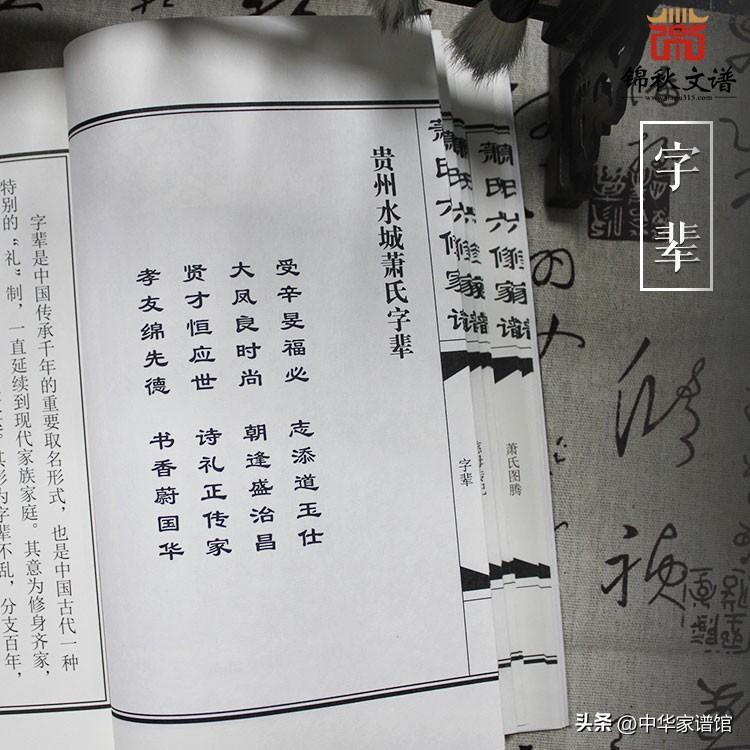 锦秋文谱
字辈
贵州水城萧氏字辈
受辛旻福必 志添道玉仕
大凤良时尚 朝逢盛治昌
贤才恒应世 诗礼正传家
孝友绵先德 书香蔚国华
萧氏六修家谱
字辈
萧氏图腾
字辈是中国传承千年的重要取名形式，也是中国古代一种
特别的“礼”制，一直延续到现代家族家庭。其意为修身齐家，
字辈不乱，分支百年，
头条 @中华家谱馆